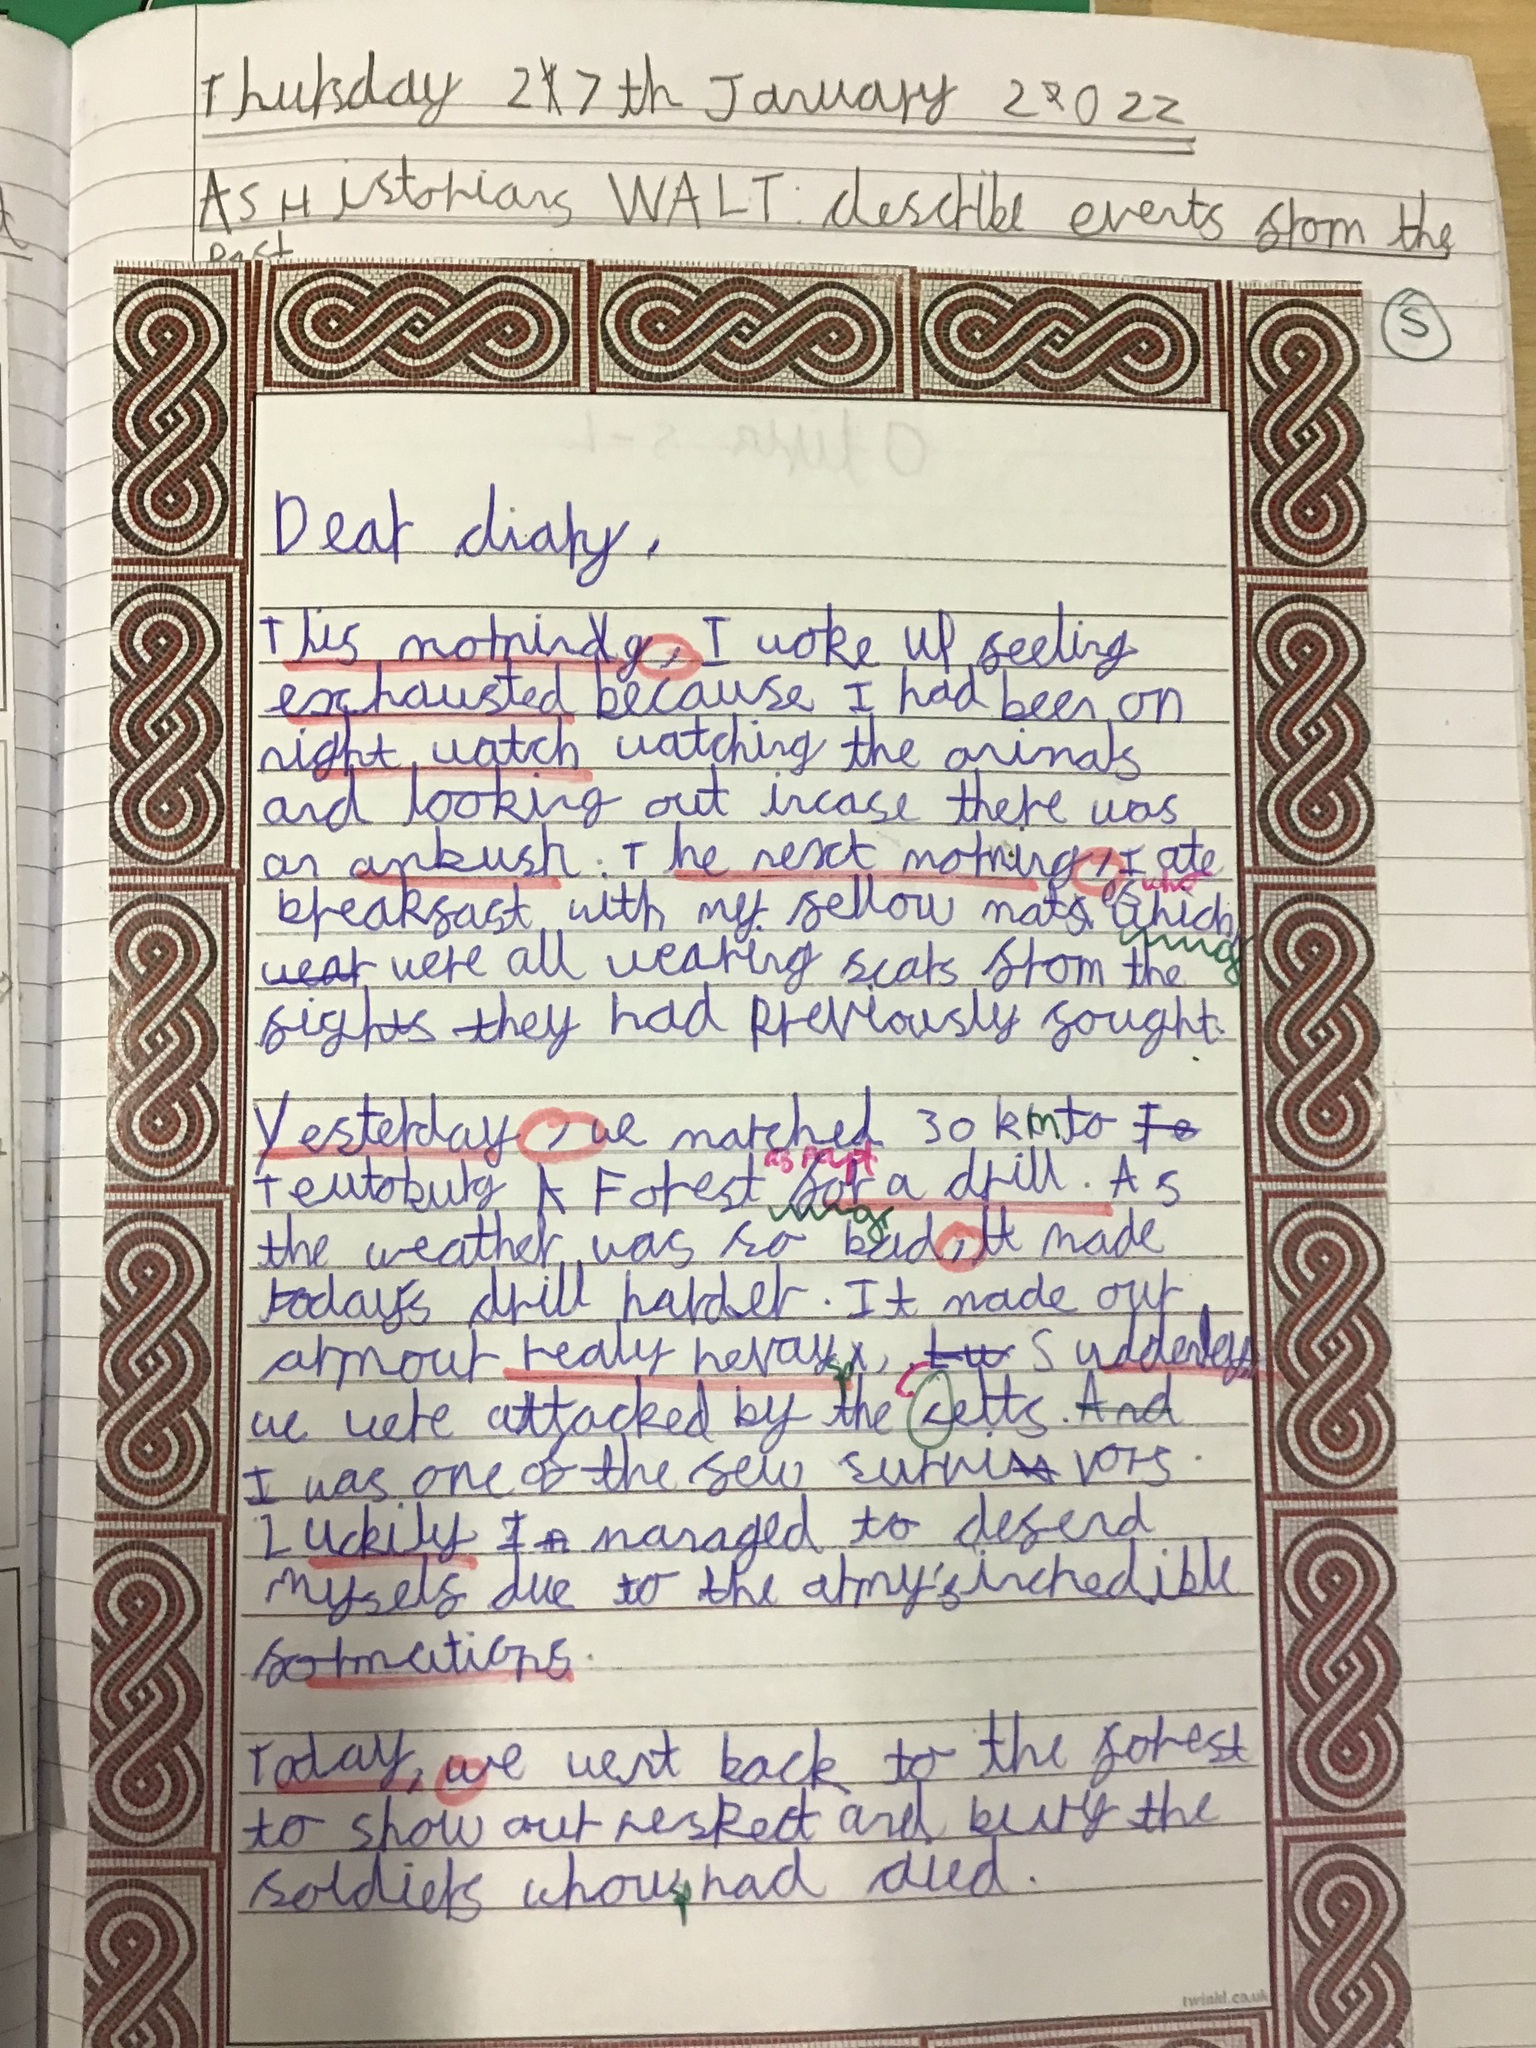 Thursday 27th January 2022
As Historians WALT: describe events from the
past
S
Dear diary,
This morning, I woke up feeling
exhausted because I had been on
night watch watching the animals
and looking out incase there was
an ambush. The next morning, I ate
who
breakfast with my fellow mats. Which
wear were all wearing scars from the
fights they had previously fought.
Yesterday, we marched 30 km to To
as part
Teutoburg Forest for a drill. As
the weather was so bad, It made
todays drill harder. It made our
armour realy hevay, Suddenley
sp
we were attacked by the celts. And
I was one of the few survivors.
Luckily I managed to defend
myself due to the army's incredible
formations.
Today, we went back to the forest
to show our respect and bury the
soldiers whous had died.
twinkl.co.uk